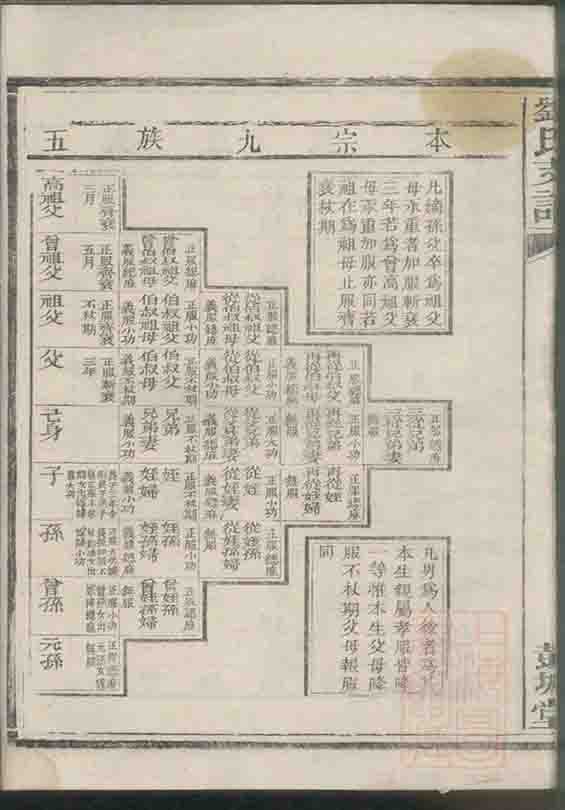 本宗九族五
凡嫡孫父卒爲祖父
母承重者加服斬衰
三年若爲曾高祖父
母承重加服亦同若
祖在爲祖母止服齊
衰杖期
高祖父
正服齊衰
三月
曾祖父
正服齊衰
五月
曾伯叔祖父
曾伯叔祖母
正服緦麻
義服緦麻
祖父
正服齊衰
不杖期
伯叔祖父
伯叔祖母
正服小功
義服小功
從伯叔祖父
從伯叔祖母
正服緦麻
義服緦麻
父
正服斬衰
三年
伯叔父
伯叔母
正服不杖期
義服不杖期
從伯叔父
從伯叔母
正服小功
義服小功
再從伯叔父
再從伯叔母
正服緦麻
義服緦麻
己身
兄弟
兄弟妻
正服不杖期
義服小功
從兄弟
從兄弟妻
正服大功
義服緦麻
再從兄弟
再從兄弟妻
正服小功
無服
三從兄弟
三從兄弟妻
正服緦麻
無服
子
姪
姪婦
正服不杖期
義服大功
從姪
從姪婦
正服小功
義服緦麻
再從姪
再從姪婦
正服緦麻
無服
孫
姪孫
姪孫婦
正服小功
義服緦麻
從姪孫
從姪孫婦
正服緦麻
無服
曾孫
曾姪孫
曾姪孫婦
正服緦麻
無服
元孫
凡男爲人後者爲
本生親屬孝服皆降
一等惟本生父母降
服不杖期父母報服
同
劉氏支譜